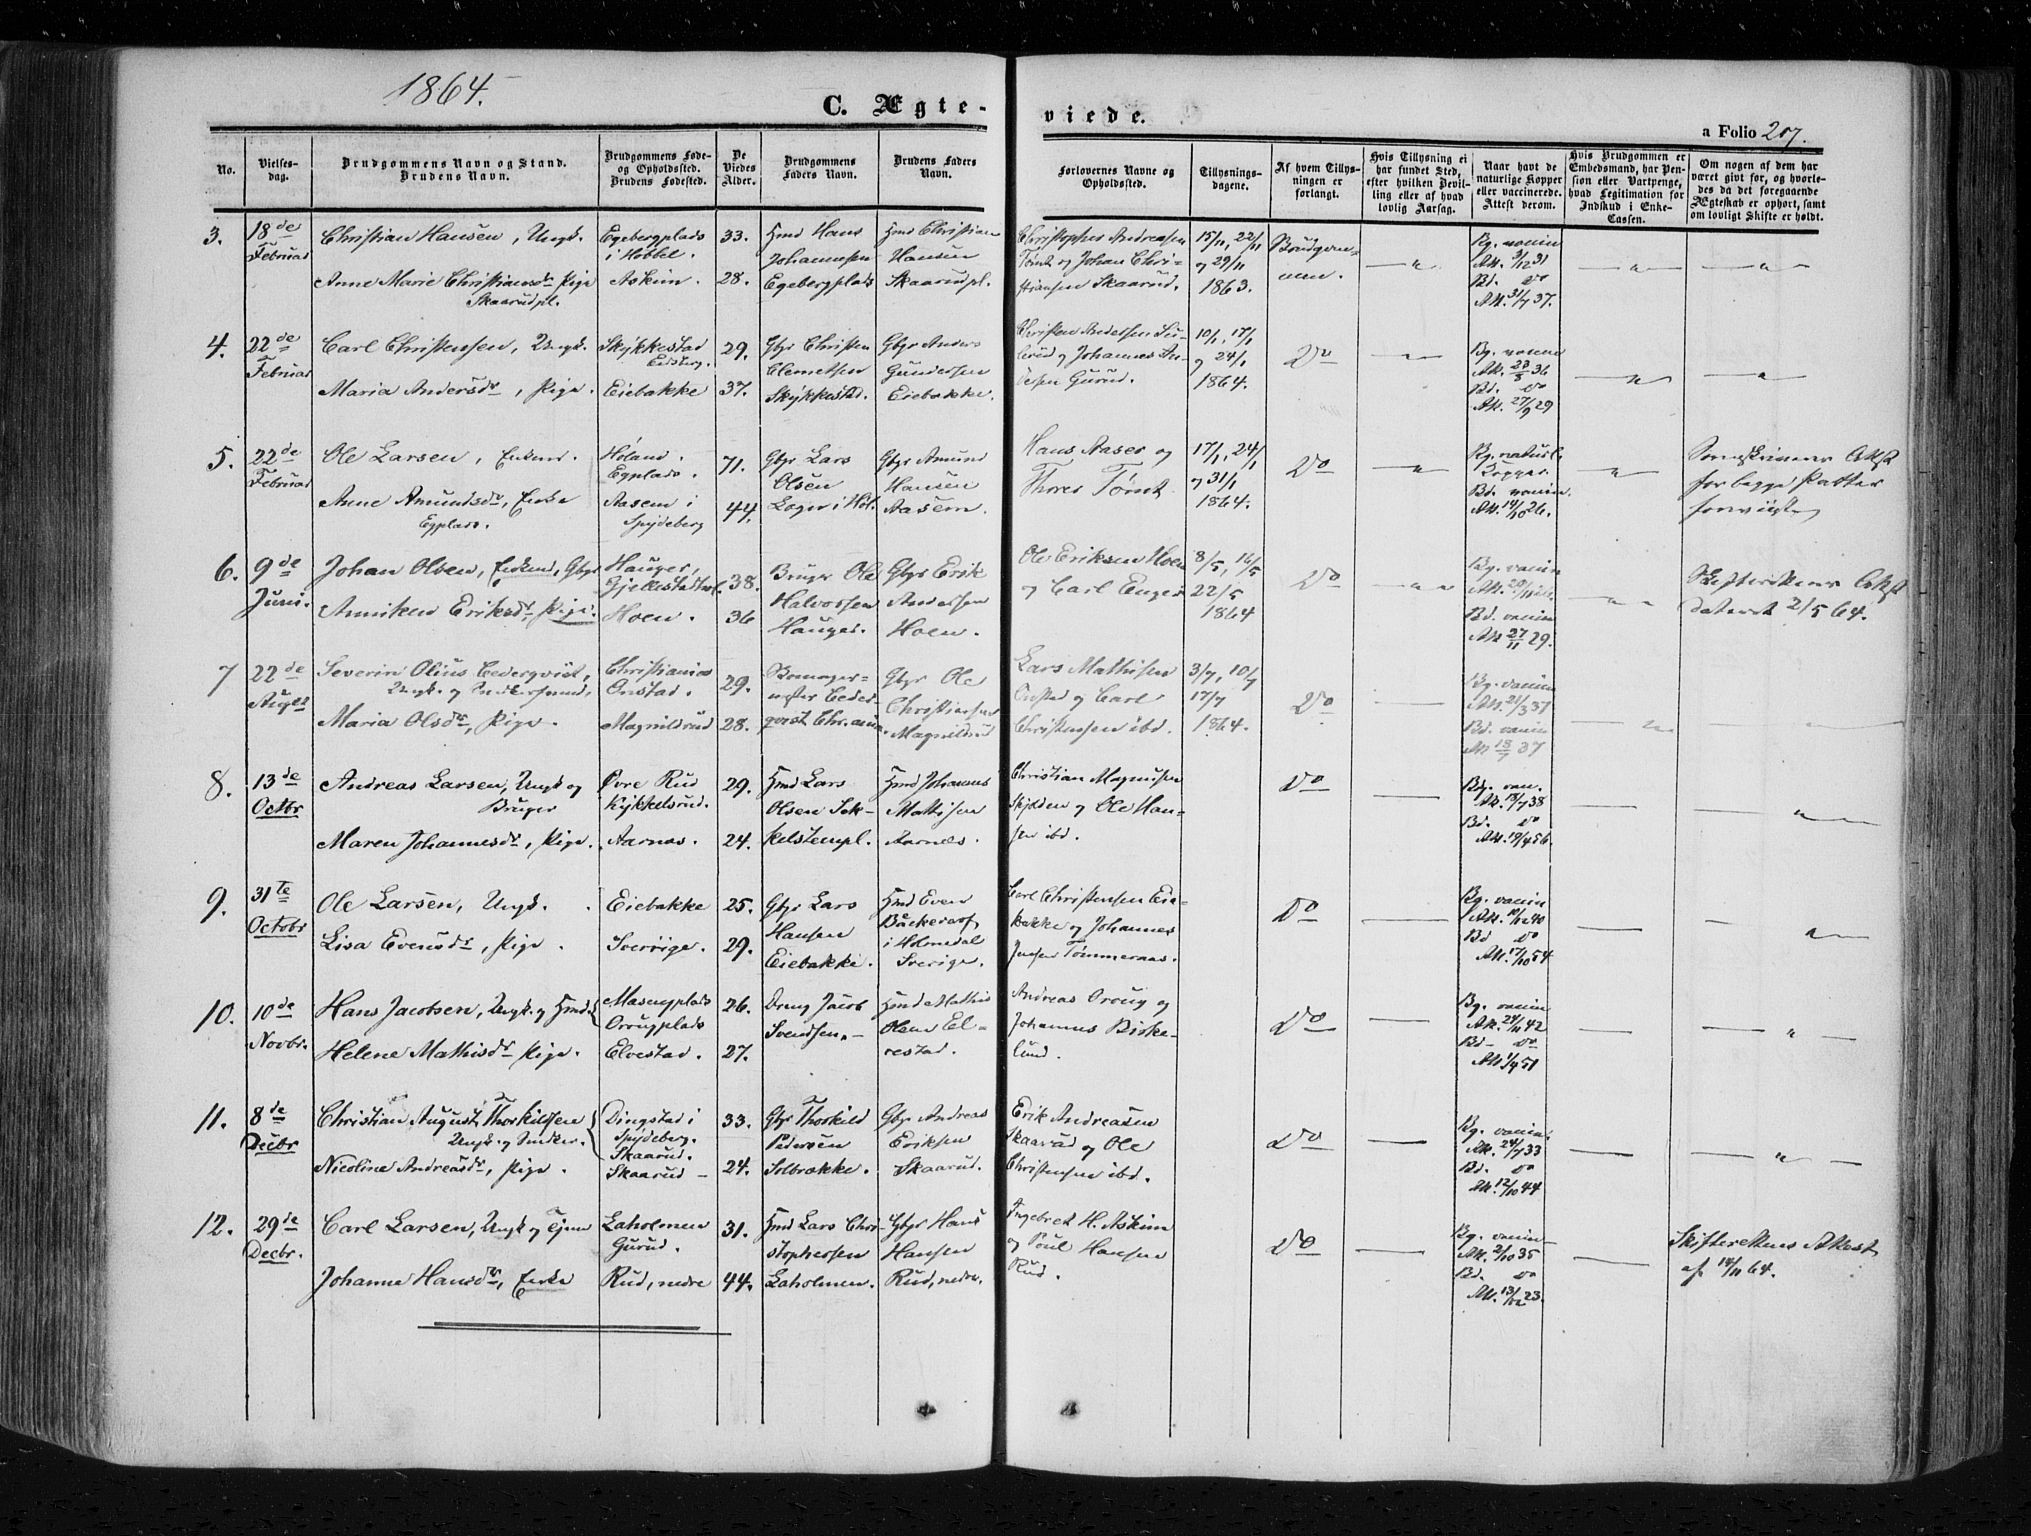 1864.
C. Ægte-
viede.
a Folio 207.
No.
Vielses-
dag.
Brudgommens Navn og Stand.
Brudens Navn.
Brudgommens Føde-
og Opholdssted.
Brudens Fødested.
De
Viedes
Alder.
Brudgommens
Faders Navn.
Brudens Faders
Navn.
Forlovernes Navne og
Opholdssted.
Tillysnings-
dagene.
Af hvem Tillys-
ningen er
forlangt.
Hvis Tillysning ei
har fundet Sted,
efter hvilken Bevil-
ling eller af hvad
lovlig Aarsag.
Naar havt de
naturlige Kopper
eller vaccinerede.
Attest derom.
Hvis Brudgommen er
Embedsmand, har Pen-
sion eller Vartpenge,
hvad Legitimation for
Indskud i Enke-
Cassen.
Om nogen af dem har
været gift før, og hvorle-
des da det foregaaende
Ægteskab er ophørt, samt
om lovligt Skifte er holdt.
3.
18de
Februar
Christian Hansen, Ungk.
Anne Marie Christiansdr Pige
Skaarudpl.
Egebergplads
i Hobbel.
Askim.
33.
28.
Hmd Hans
Johannesen
Egebergplads
Hmd Christian
Hansen
Skaarudpl.
Christopher Andreasen
Tømt og Johan Chri-
stiansen Skaarud.
15/11, 22/11
og 29/11
1863.
Brudgom-
men.
Bg. vaccin
Att. 3/12 31
Bd. do
Att. 31/7 37.
4.
22de
Februar
Carl Christensen, Ungk.
Maria Andersdr, Pige.
Skykkestad
Eidsberg.
Eiebakke
29.
37.
Gbr Christen
Clemetsen
Skykkestad.
Gbr Anders
Gundersen
Eiebakke.
og Johannes An-
dersen Gurud.
10/1, 17/1
og 24/1
1864.
Do
Bg. vaccin
Att. 23/8 36
Bd. do
Att. 27/9 29
5.
22de
Februar
Ole Larsen, Enkem.
Anne Amundsdr, Enke
Egplads.
Høland.
Egplads.
Aasem i
Spydeberg
71.
44.
Gbr Lars
Olsen
Loger i Høl.
Gbr Amund
Hansen
Aasem.
Hans Aaser og
Thores Tømt.
17/1, 24/1
og 31/1
1864.
Do
Bg. naturl.
Kopper.
Bd. vaccin.
Att. 14/10 26.
Sorenskriverens Attest
for begge Parter
forevist
6.
9de
Juni.
Johan Olsen, Enkem, Gbr
Anniken Eriksdr, Pige.
Hauger,
Hoen.
38.
36
Bruger Ole
Halvorsen
Hauger.
Gbr Erik
Andersen
Hoen.
Ole Eriksen Hoen
og Carl Enger
8/5, 16/5
22/5
1864
Do
Bg. vaccin
Bd. vaccin
Att 27/11 29.
Skifterettens Attest
dateret 2/5 64.
7
22de
August
Severin Olius Cederqvist,
Maria Olsdr, Pige.
Christiania
Onstad.
Magnildrud
29.
28.
qvist Chr.ania.
Gbr Ole
Christiansen
Magnildrud
Lars Mathisen
Onstad og Carl
Christensen ibd.
3/7, 10/7
17/7
1864.
Do
Bg. vaccin
Att. 21/3 37
Bd. vaccin
Att 13/7 37
8.
13de
Octbr
Andreas Larsen, Ungk og
Bruger
Maren Johannesdr, Pige.
Øvre Rud
Kykkelsrud.
Aarnæs.
29.
24.
Hmd Lars
Olsen Sek-
kelstenpl.
Hmd Johannes
Mathisen
Aarnæs.
Christian Magnusen
Skjolden og Ole Han-
sen ibd.
Do
Bg. vac.
Att. 18/7 38
Bd. do
Att. 19/4 56.
9.
31te
Octobr
Ole Larsen, Ungk.
Lisa Evensdr, Pige.
Eiebakke
Sverrige.
25.
29.
Gbr Lars
Hansen
Eiebakke.
Hmd Even
i Holmedal
Sverige.
Carl Christensen Eie-
bakke og Johannes
Jensen Tømmeraas.
Do
Bg. vaccin
Att. 10/12 40
Bd do
Att. 17/10 54
10.
10de
Novbr.
Hans Jacobsen, Ungk. og Hmd.
Helene Mathisdr Pige.
Masengplads
Oraugplads
Elvestad.
26.
27.
Dreng Jacob
Svendsen.
Hmd Mathis
Olsen El-
vestad.
Andreas Oraug og
Johannes Birke-
lund.
Do
Bg. vaccin
Att. 24/11 42
Bd - do
Att. 1/9 51
11.
8de
Decbr
Christian August Thorkildsen
Ungk. og Snedker.
Nicoline Andreasdr, Pige.
Dingstad i
Spydeberg.
Skaarud.
Skaarud
33.
24.
Gbr Thorkild
Pedersen
Solbrække.
Gbr Andreas
Eriksen
Skaarud.
Erik Andreasen
Skaarud og Ole
Christensen ibd.
Do
Bg. vaccin.
Att. 24/7 33
Bd. do
Att. 12/10 44
12.
29de
Decbr.
Carl Larsen, Ungk og Tjen
Johanne Hansdr, Enke
Laholmen
Gurud.
Rud, nedre
31.
44.
Hmd Lars Chri-
stophersen
Laholmen.
Gbr Hans
Hansen
Rud, nedre.
Ingebret H. Askim
og Poul Hansen
Rud.
Do
Bg. vaccin
Att. 2/10 35
Bd. do
Att. 13/12 23.
Skifterettens Attest
af 14/11 64.